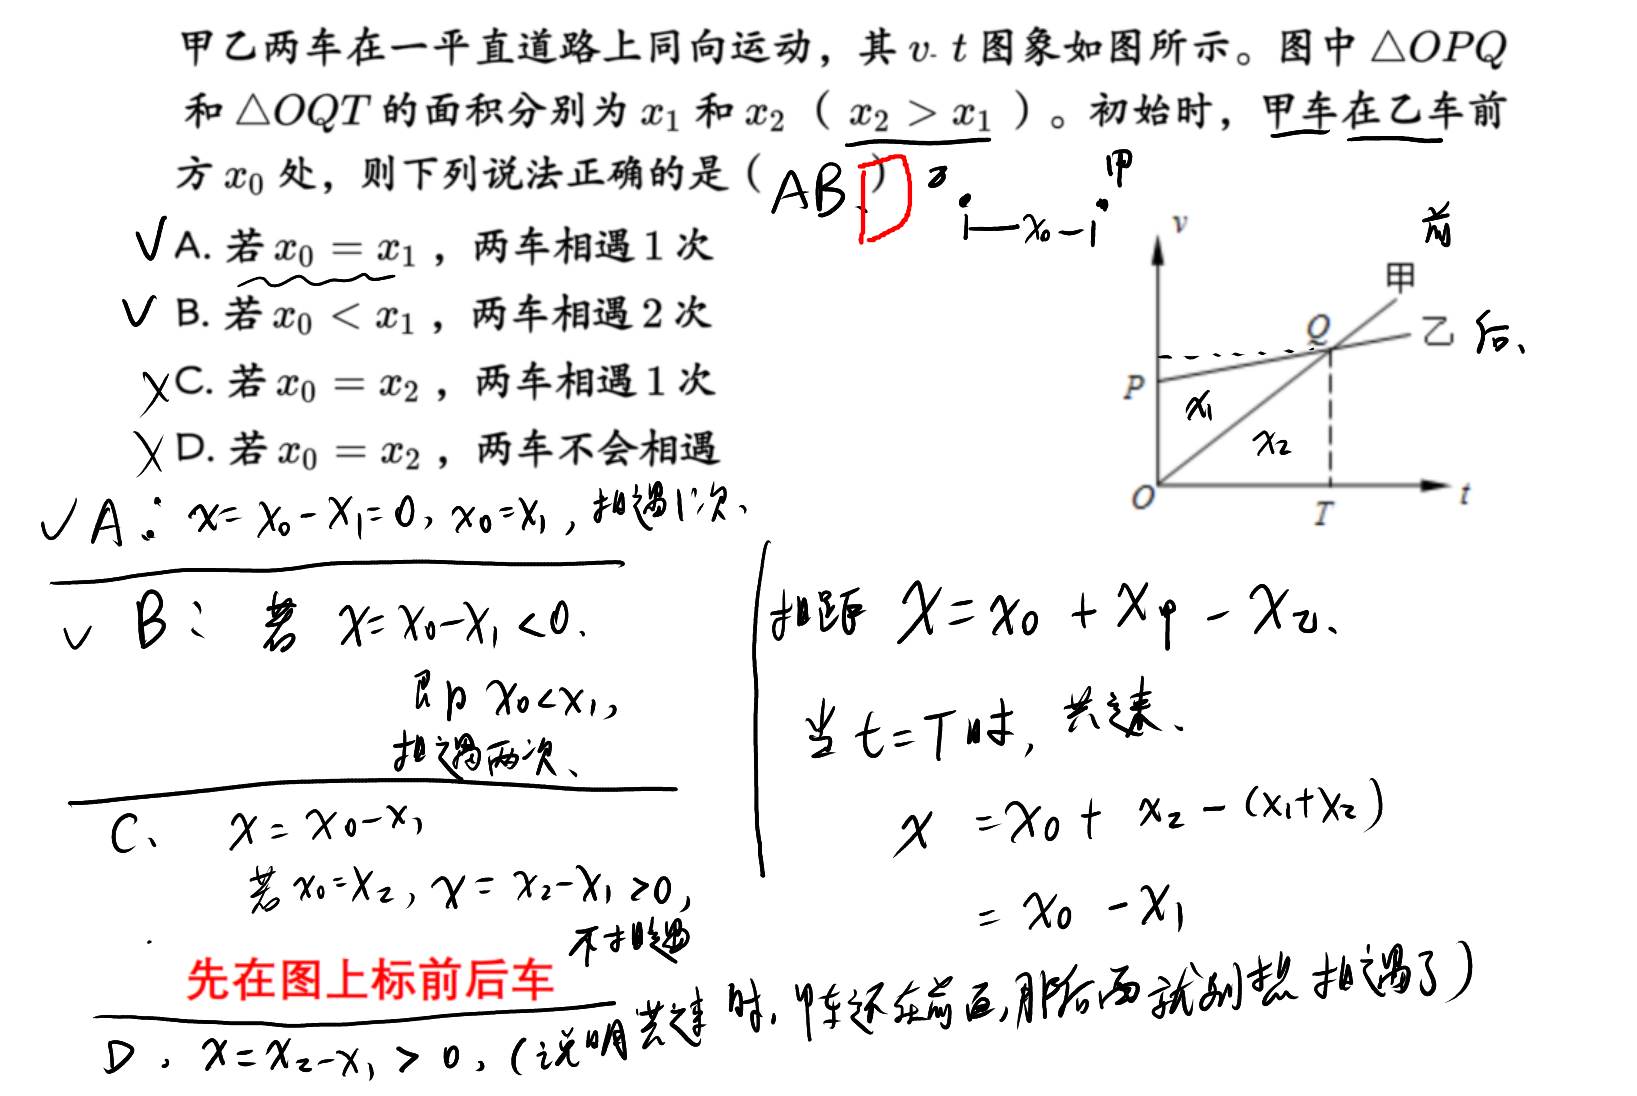 甲乙两车在一平直道路上同向运动，其 v- t 图象如图所示。图中 △OPQ
和 △OQT 的面积分别为 x₁ 和 x₂（ x₂ > x₁ ）。初始时，甲车在乙车前
方 x₀ 处，则下列说法正确的是（ AB、D ）
乙 甲
x₀
√ A. 若 x₀ = x₁ ，两车相遇 1 次
√ B. 若 x₀ < x₁ ，两车相遇 2 次
X C. 若 x₀ = x₂ ，两车相遇 1 次
X D. 若 x₀ = x₂ ，两车不会相遇
v
前
甲
Q 乙 后、
P
x₁
x₂
O T t
√ A: x = x₀ - x₁ = 0, x₀ = x₁, 相遇1次、
√ B: 若 x = x₀ - x₁ < 0.
即 x₀ < x₁,
相遇两次、
C、 x = x₀ - x₁
若 x₀ = x₂, x = x₂ - x₁ > 0,
不相遇
先在图上标前后车
D. x = x₂ - x₁ > 0, (说明共速时,甲车还在前面,那后面就别想相遇了)
相距 x = x₀ + x甲 - x乙、
当 t = T 时, 共速、
x = x₀ + x₂ - (x₁ + x₂)
= x₀ - x₁